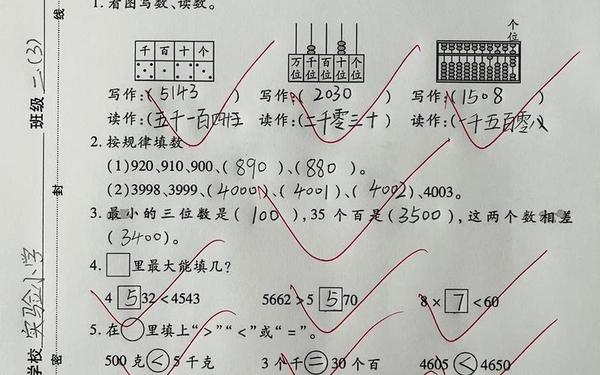 1. 看图写数、读数。
千 百 十 个
万位 千位 百位 十位 个位
个位
写作:(5143) 写作:(2030) 写作:(1508)
读作:(五千一百四) 读作:(二千零三十) 读作:(一千五百零八)
2. 按规律填数
(1)920、910、900、(890)、(880)。
(2)3998、3999、(4000)、(4001)、(4002)、4003。
3. 最小的三位数是(100),35个百是(3500),这两个数相差
(3400)。
4. □里最大能填几?
4 5 32<4543 5662>5 5 70 8× 7 <60
5. 在○里填上“>”“<”或“=”。
500克<5千克 3个千=30个百 4605<4650
学校 实验小学 班级 二(3)
密 封 线